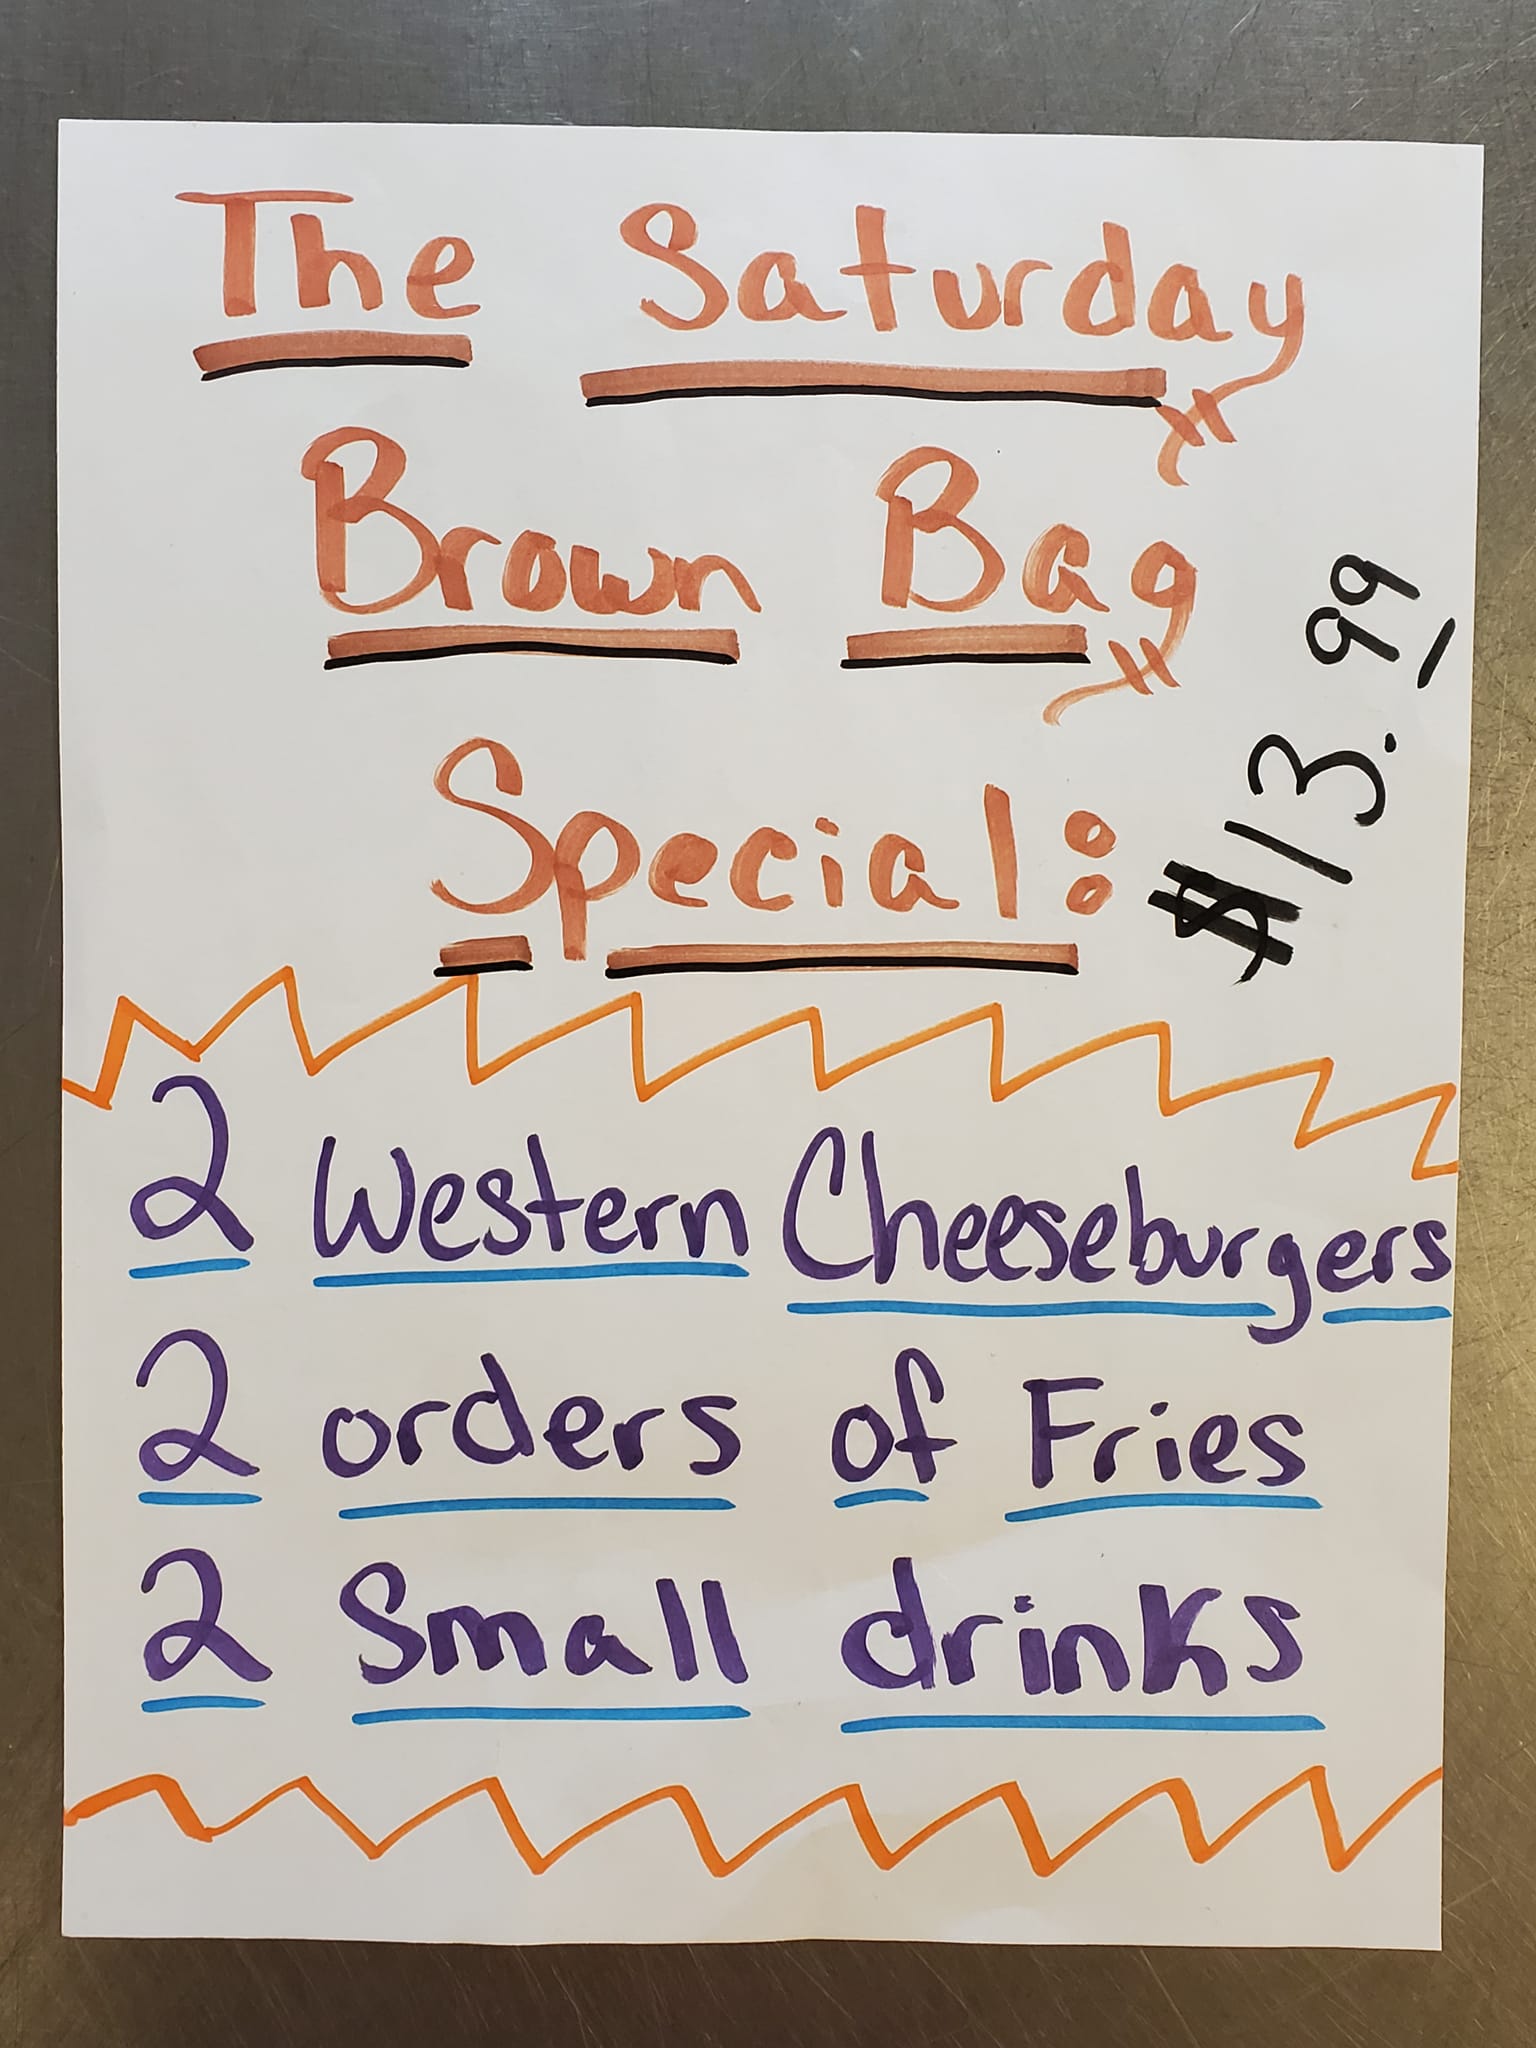 The Saturday
Brown Bag
Special:
$13.99
2 Western Cheeseburgers
2 orders of Fries
2 Small drinks